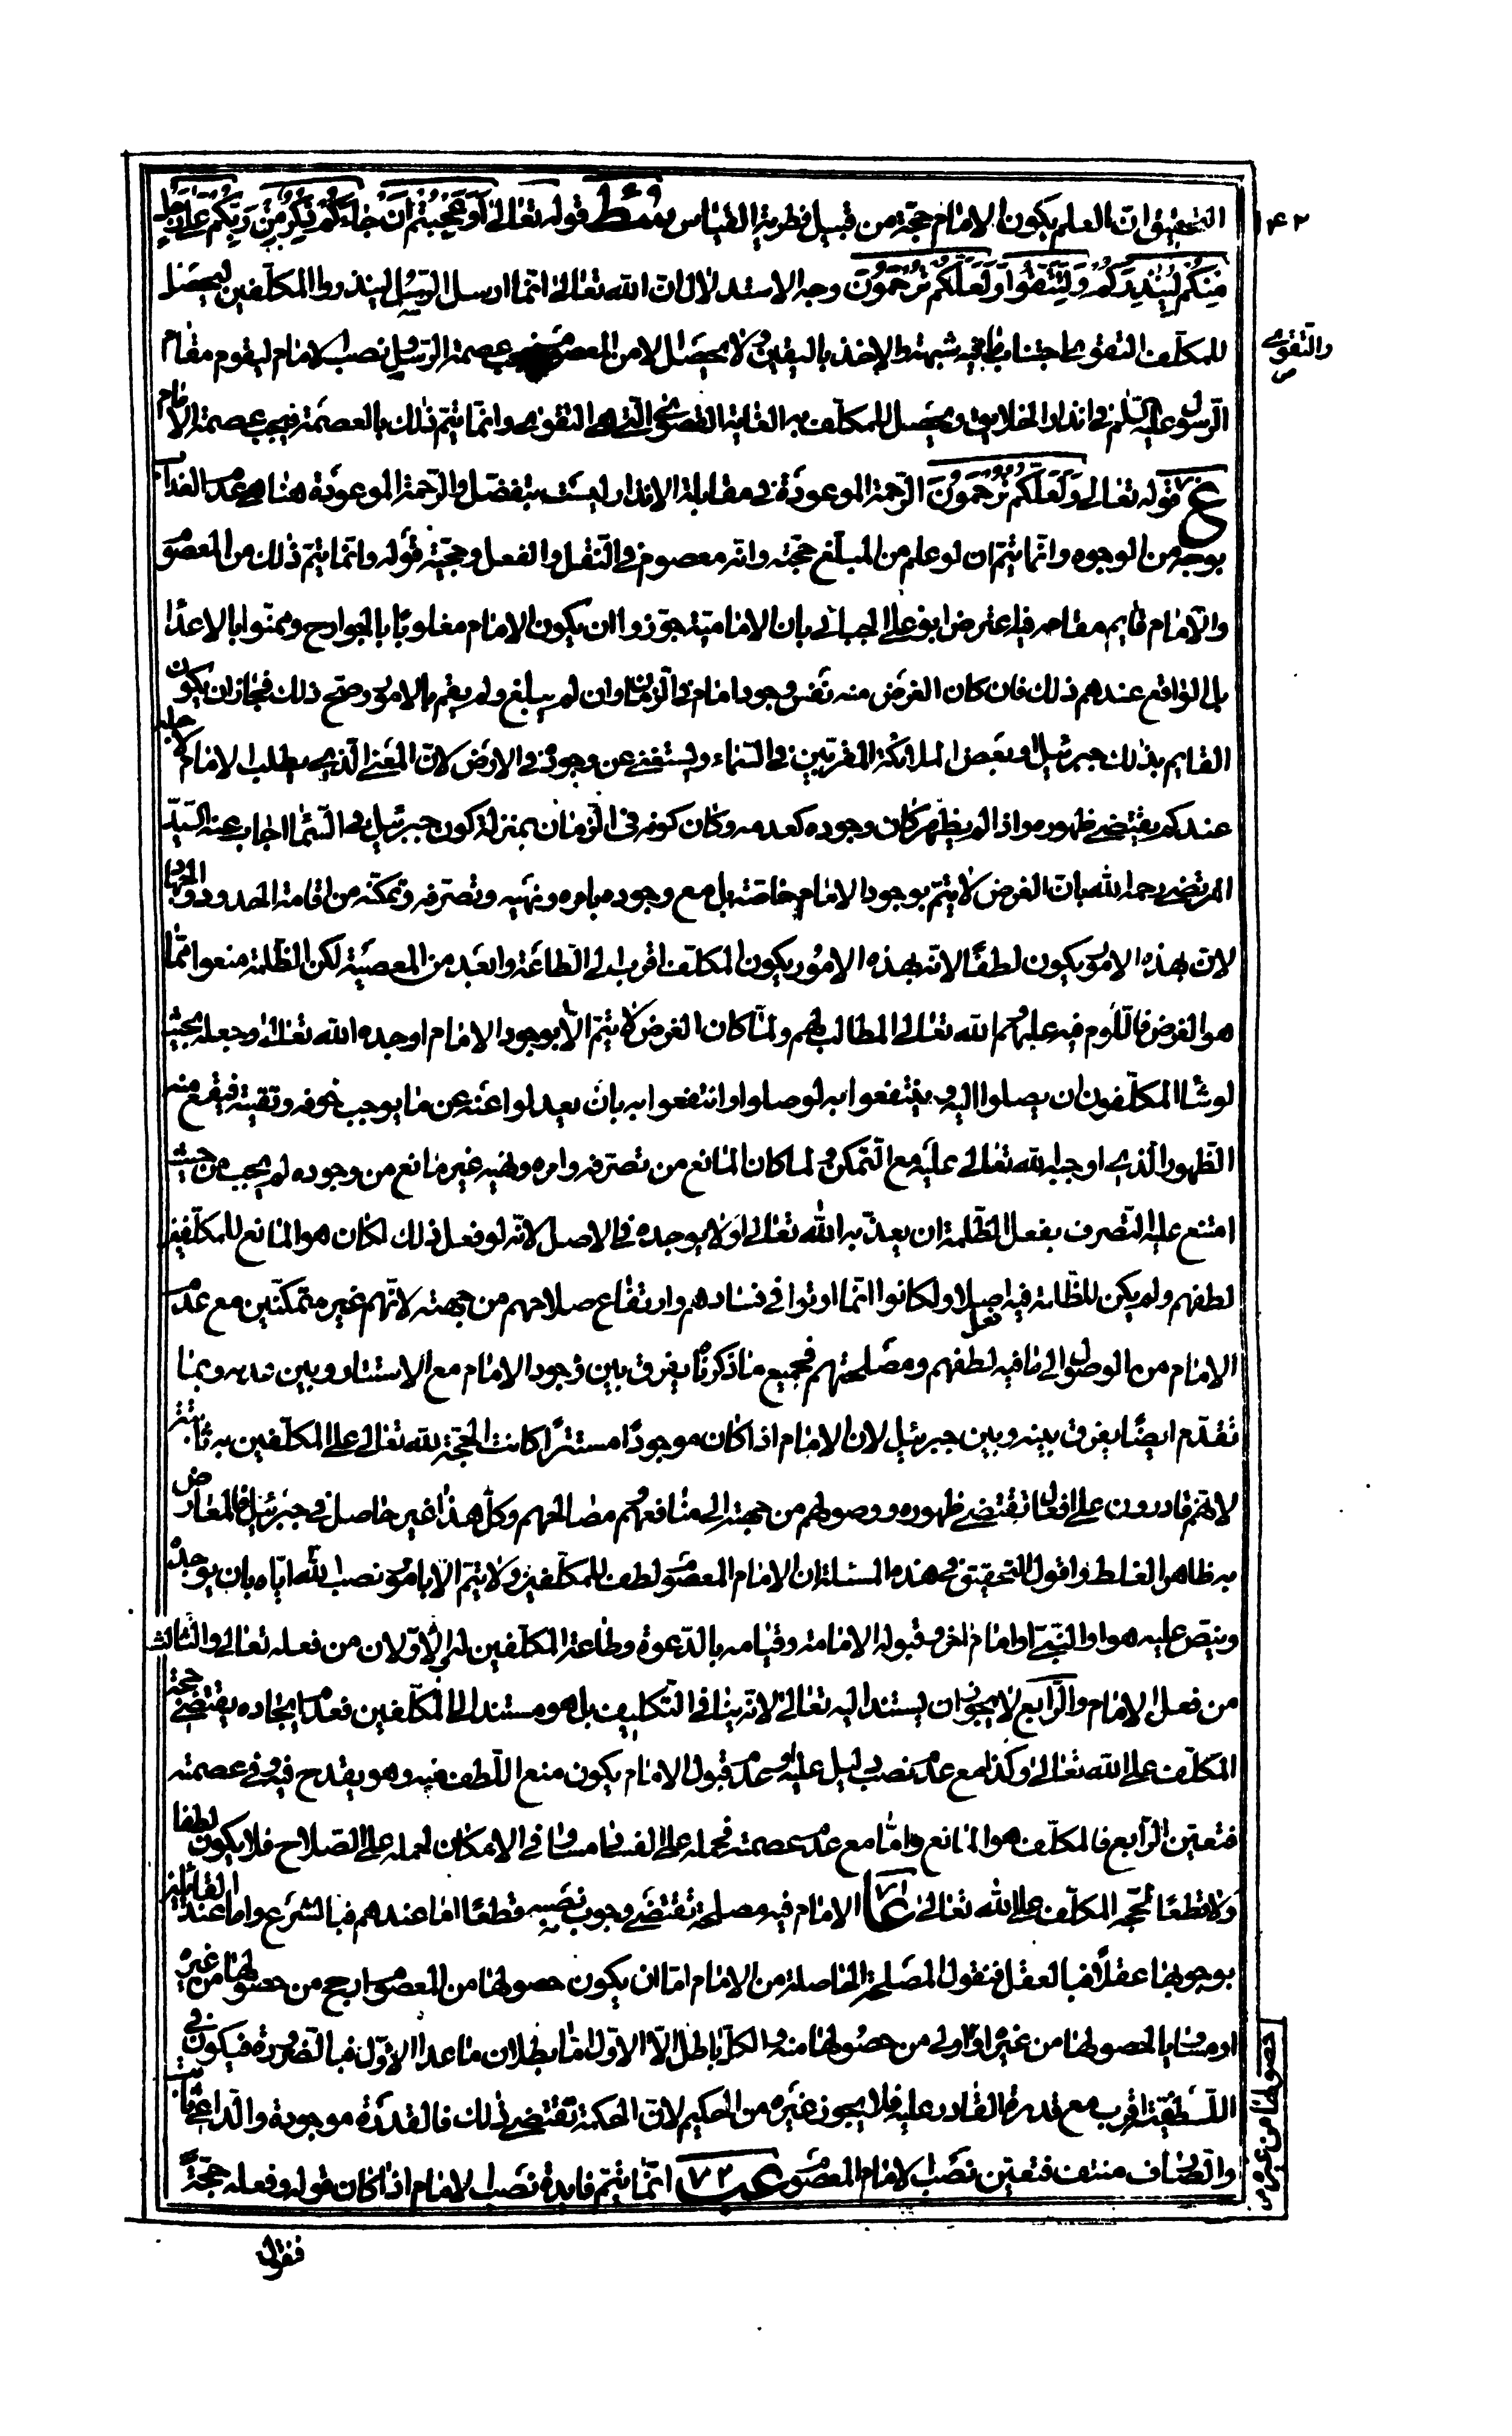 ۴۲
التحقيق ان العلم بكون الامام حجة من قبيل فطرية القياس سط ۶۹ قوله تعالى أوعجبتم ان جاءكم ذكر من ربكم على رجل
منكم لينذركم ولتتقوا ولعلكم ترحمون وجه الاستدلال ان الله تعالى انما ارسل الرسل لينذروا المكلفين ليحصل
للمكلف التقوى اجتناب ما فيه شبهة والاخذ باليقين ولا يحصل الا من المعصوم فيجب عصمة الرسل ونصب الامام ليقوم مقام
والتقوى
الرسول عليه السلم في انذار الخلايق ويحصل للمكلف به الغاية القصوى التي هي التقوى وانما يتم ذلك بالعصمة فيجب عصمة الامام
ع ۷۰ قوله تعالى ولعلكم ترحمون الرحمة الموعودة في مقابلة الانذار ليست بتفضل والرحمة الموعودة هنا هي عدم العذاب
بوجه من الوجوه وانما يتم ان لو علم من المبلغ حجته وانه معصوم في النقل والفعل وحجية قوله وانما يتم ذلك من المعصوم
والامام قايم مقامه فيه اعترض ابو على الجبائى بان الامامية جوزوا ان يكون الامام مغلوبا بالجوارح وممنوا بالاعداء
بل الواقع عندهم ذلك فان كان الغرض منه نفس وجود امام في الزمان وان لم يبلغ ولم يقم بالامور وصح ذلك فجاز ان يكون
القايم بذلك جبرئيل او بعض الملائكة المقربين في السماء ويستغنى عن وجوده في الارض لان المعنى الذي يطلب الامام لاجله
عندكم يقتضى ظهوره واذا لم يظهر كان وجوده كعدمه وكان كونه في الزمان بمنزلة كون جبرئيل في السماء اجاب عنه السيد
المرتضى رحمه الله بان الغرض لا يتم بوجود الامام خاصة بل مع وجوده بامره ونهيه وتصرفه وتمكنه من اقامة الحدود والجهاد
لان بهذه الامور يكون لطفا لانه بهذه الامور يكون المكلف اقرب الى الطاعة وابعد من المعصية لكن الظلمة منعوا مما
هو الغرض فاللوم فيه عليهم والله تعالى المطالب لهم ولما كان الغرض لا يتم الا بوجود الامام اوجده الله تعالى وجعله بحيث
لو شاء المكلفون ان يصلوا اليه وينتفعوا به لوصلوا وانتفعوا به بان يعدلوا عنه عن ما يوجب خوفه وتقيته فيقع منه
الظهور الذي اوجبه الله تعالى عليه مع التمكن ولما كان المانع من تصرفه وامره ونهيه غير مانع من وجوده لم يجب من حيث
امتنع عليه التصرف بفعل الظلمة ان يعدمه الله تعالى او لا يوجده في الاصل لانه لو فعل ذلك لكان هو المانع للمكلفين
لطفهم ولم يكن للظلمة فيه اصلا ولكانوا انما اوتوا في فسادهم وارتفاع صلاحهم من جهته لانهم غير متمكنين مع عدم
الامام من الوصول الى ما فيه لطفهم ومصلحتهم فجميع ما ذكرناه يفرق بين وجود الامام مع الاستتار وبين عدمه وبما
تقدم ايضا يفرق بينه وبين جبرئيل لان الامام اذا كان موجودا مستترا كانت الحجة لله تعالى على المكلفين به ثابتة
لانهم قادرون على افعال تقتضى ظهوره ووصولهم من جهته الى منافعهم ومصالحهم وكل هذا غير حاصل في جبرئيل فالمعارض
به ظاهر الغلط واقول التحقيق في هذه المسئلة ان الامام المعصوم لطف للمكلفين ولا يتم الا بامور نصب الله اياه بان يوجده
وينص عليه هو او النبى او امام اخر وقبوله الامامة وقيامه بالدعوة وطاعة المكلفين له والاولان من فعله تعالى والثالث
من فعل الامام والرابع لا يجوز ان يستند اليه تعالى لانه ينافى التكليف بل هو مستند الى المكلفين فعدم ايجاده يقتضى حجة
المكلف على الله تعالى وكذا مع عدم نصب دليل عليه وعدم قبول الامام يكون منع اللطف فيه وهو يقدح فيه وفي عصمته
فتعين الرابع فالمكلف هو المانع واما مع عدم عصمته فحمله على الفساد مساو في الامكان لحمله على الصلاح فلا يكون لطفا
ولا قطعا لحجة المكلف على الله تعالى عا ۷۱ الامام فيه مصلحة تقتضى وجوب نصبه قطعا اما عندهم فبالشرع واما عند القائلين
بوجوبها عقلا فبالعقل فنقول المصلحة الحاصلة من الامام اما ان يكون حصولها من المعصوم ارجح من حصولها من غيره
او مساويا لحصولها من غيره او اولى من حصولها منه والكل باطل الا الاول اما بطلان ما عدا الاول فبالضرورة فيكون في
حصولها من غيره
اللطيف اقرب مع قدرة القادر عليه فلا يجوز غيره من الحكيم لان الحكمة تقتضى ذلك فالقدرة موجودة والداعى ثابت
والصارف منتف فتعين نصب الامام المعصوم عب ۷۲ انما يتم فايدة نصب الامام اذا كان قوله وفعله حجة
فنقول